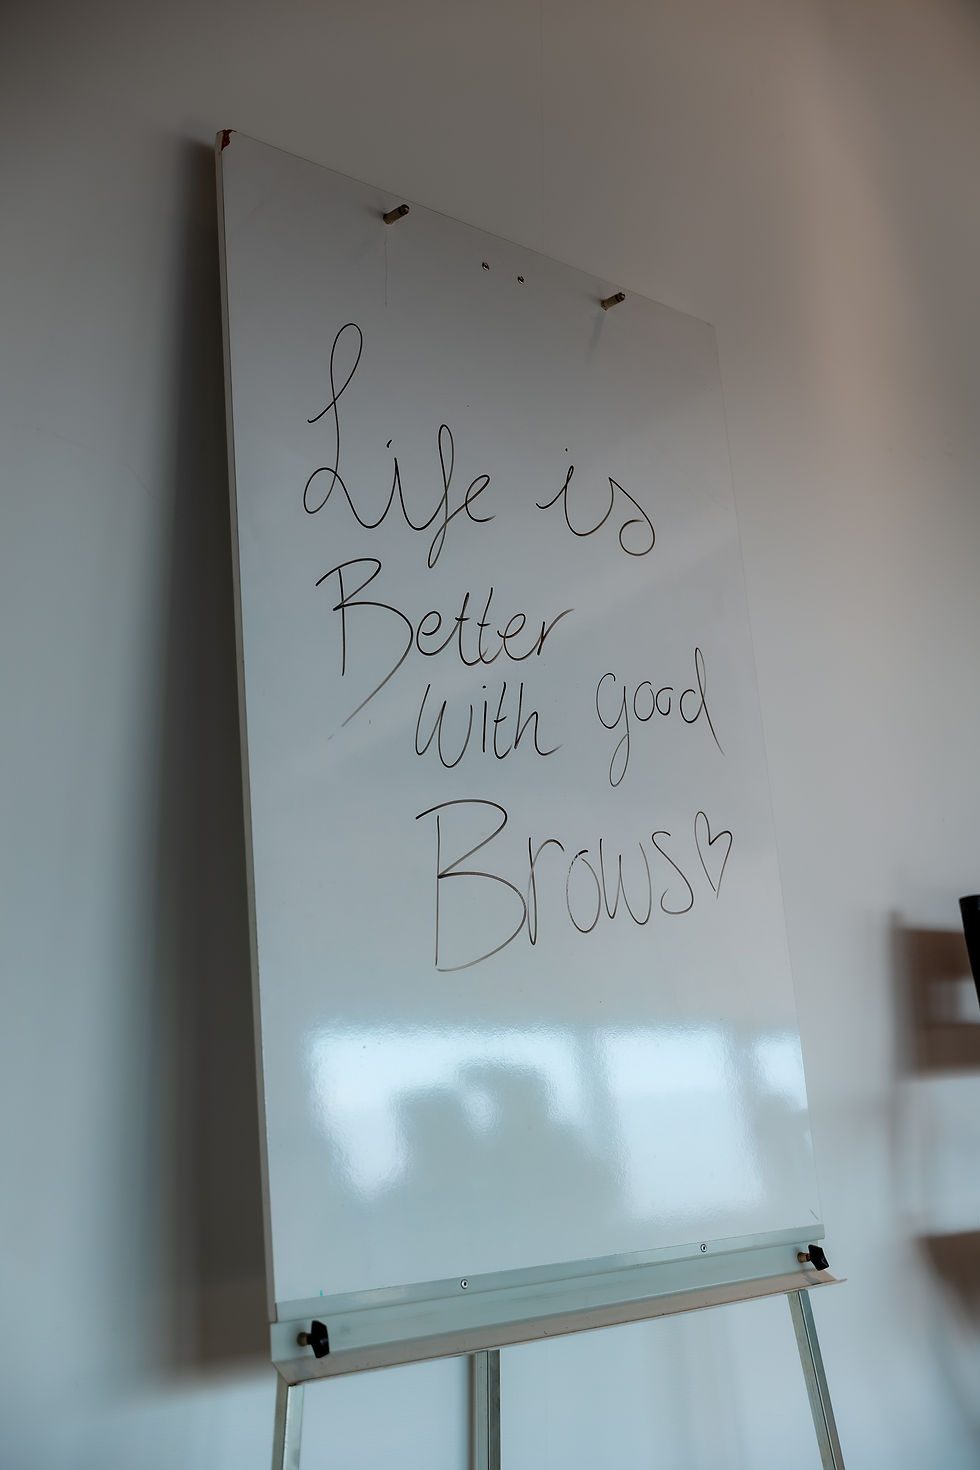 Life is
Better
with good
Brows♡